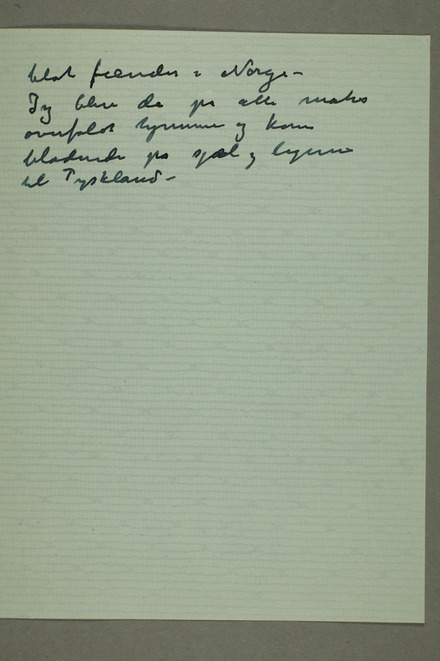 blot fiender i Norge –
Jeg blev da på alle mater
overfaldt hjemme og kom
blødende på sjæl og legeme
til Tyskland –